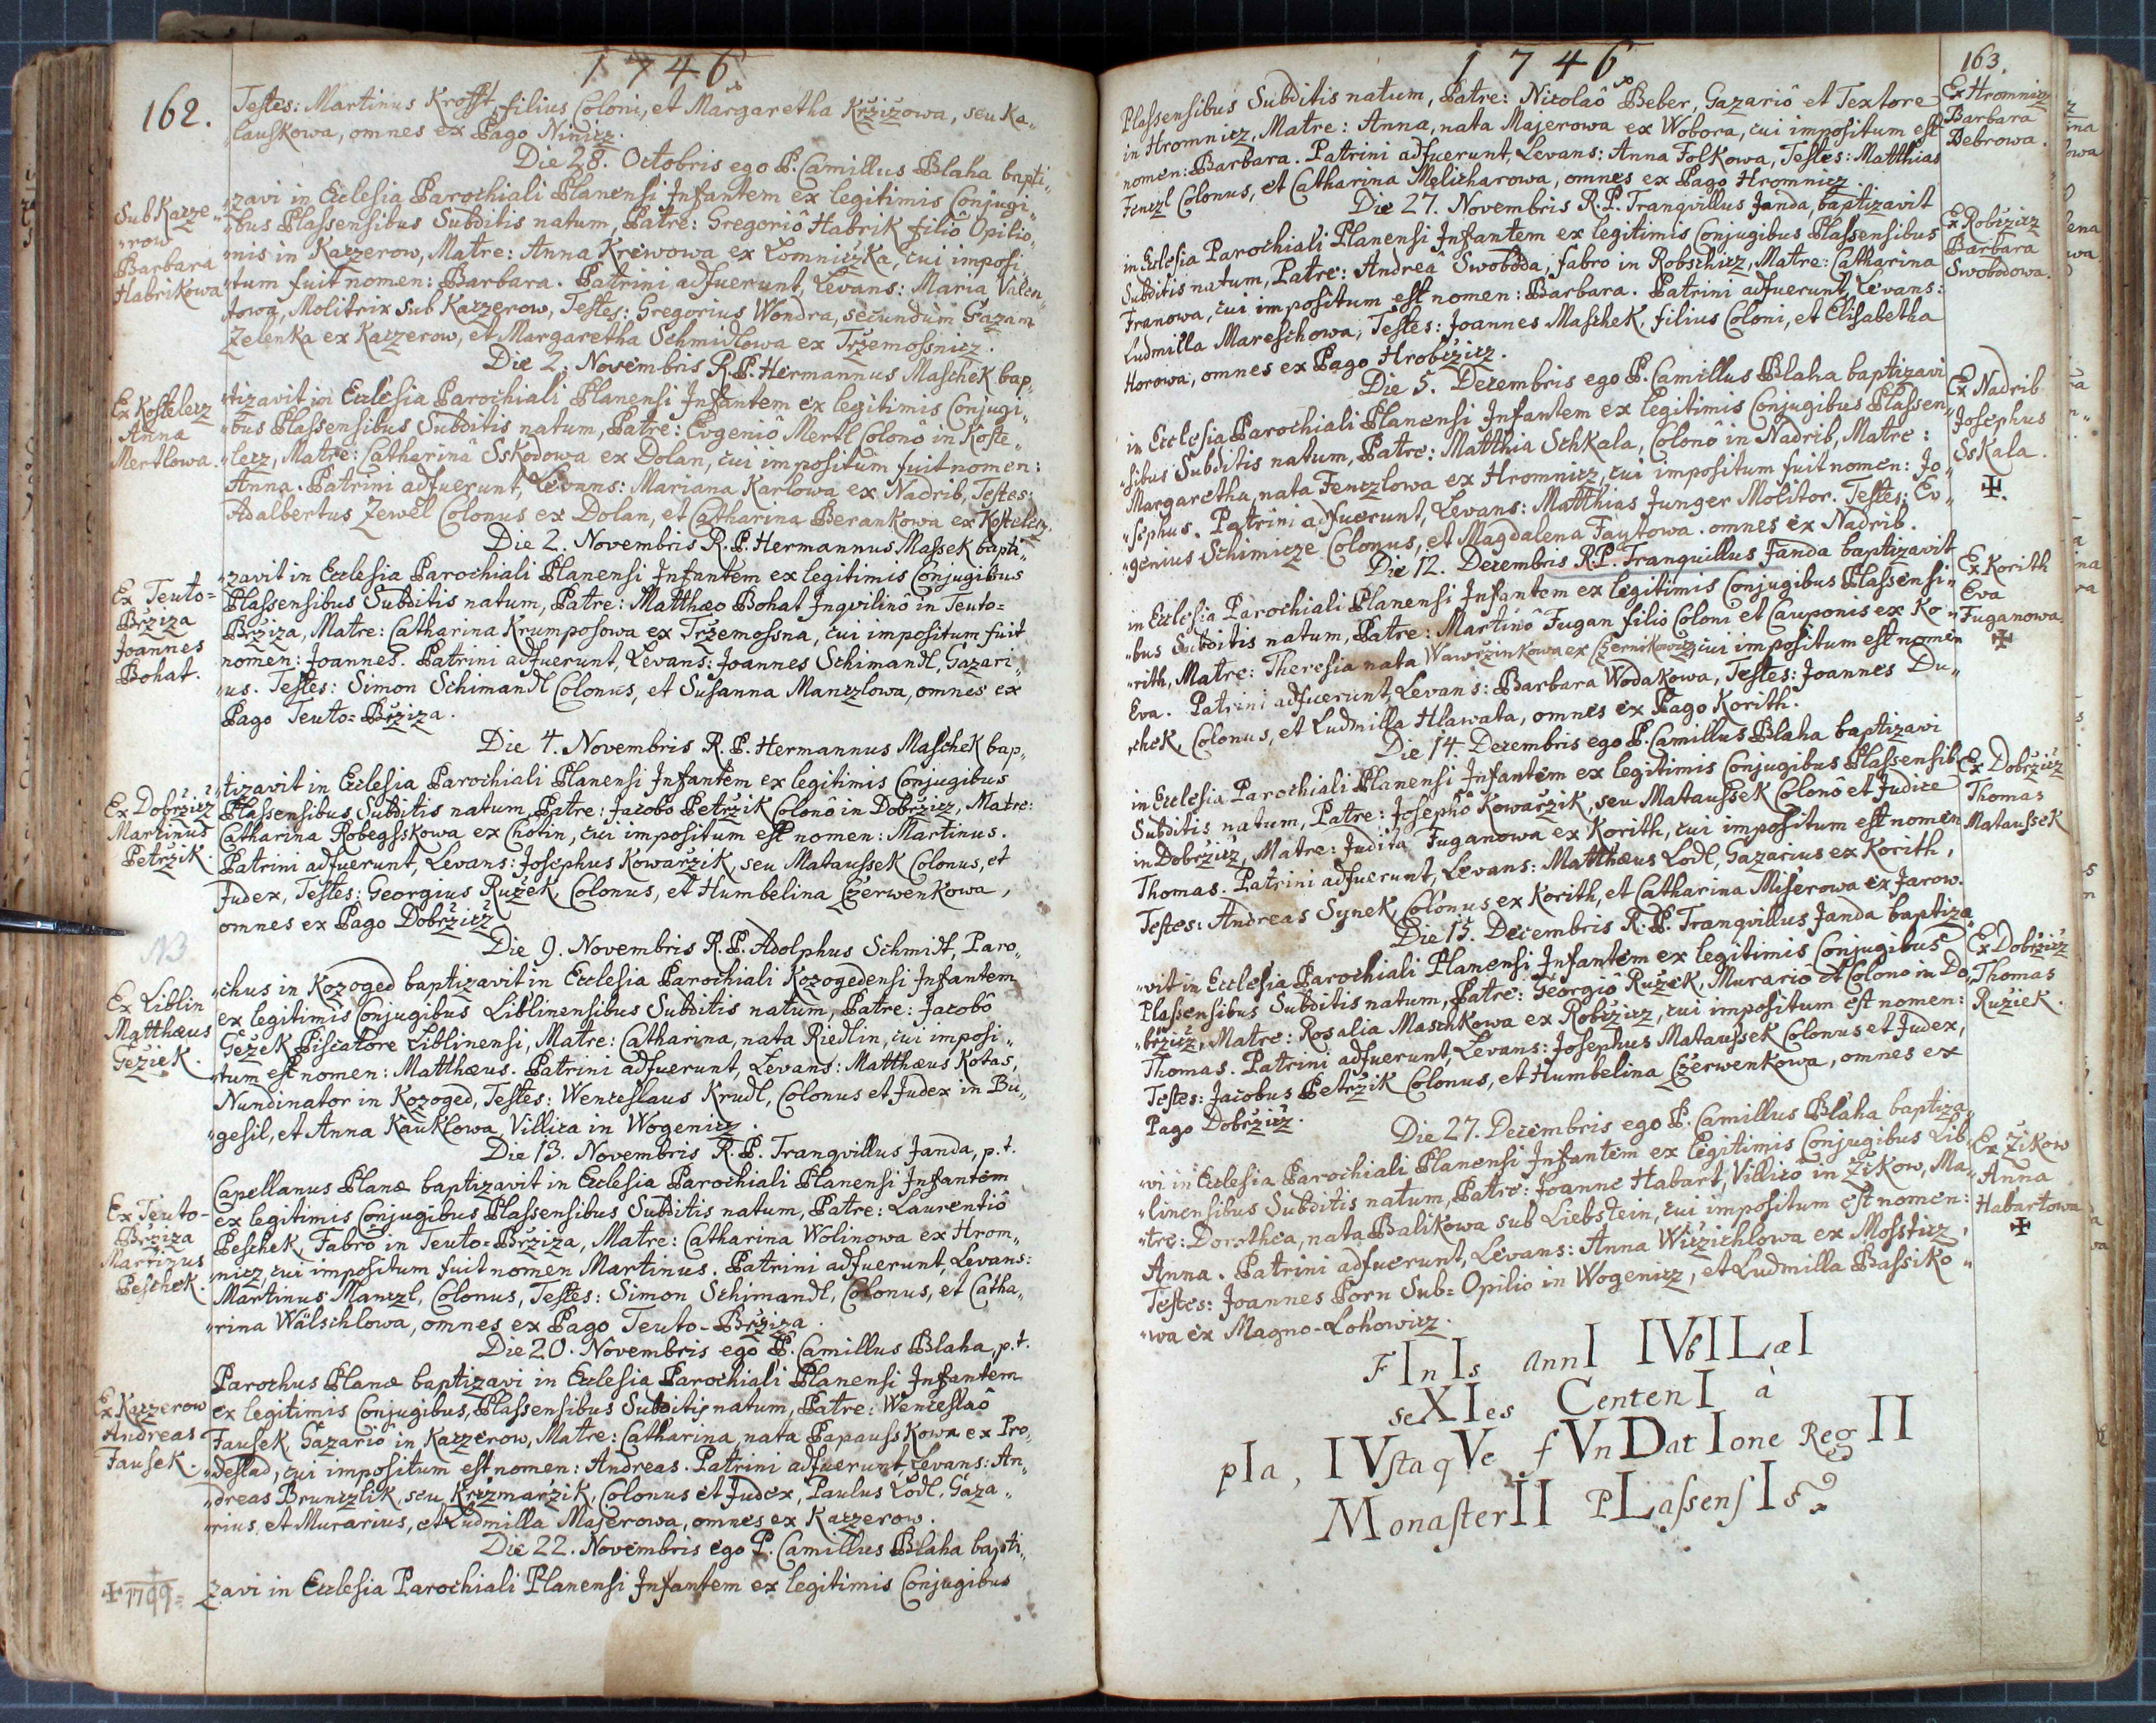 1746
162.
Testes: Martinus Krofft, filius Coloni, et Margaretha Kržižowa, seu Ka„
lauskowa, omnes ex Pago Ninicz.
Die 28. Octobris ego P. Camillus Blaha bapti„
Sub Kacze„
„row
Barbara
Habrikowa
„zavi in Ecclesia Parochiali Planensi Infantem ex legitimis Conjugi„
„bus Plassensibus Subditis natum, Patre: Gregoriô Habrik filiô Opilio„
„nis in Kaczerow, Matre: Anna Krewowa ex Lomniczka, cui imposi„
„tum fuit nomen: Barbara. Patrini adfuerunt, Levans: Maria Valen„
towa, Molitrix sub Kaczerow, Testes: Gregorius Wondra, secundùm Gazam
Zelenka ex Kaczerow, et Margaretha Schmidlowa ex Tržemossnicz.
Die 2. Novembris R.P. Hermannus Maschek bap„
Ex Kostelecz
Anna
Mertlowa.
„tizavit in Ecclesia Parochiali Planensi Infantem ex legitimis Conjugi„
„bus Plassensibus Subditis natum, Patre: Evgeniô Mertl Colonô in Koste„
„lecz, Matre: Catharinâ Sskodowa ex Dolan, cui impositum fuit nomen:
Anna. Patrini adfuerunt, Levans: Mariana Karlowa ex Nadrib, Testes:
Adalbertus Zewel Colonus ex Dolan, et Catharina Berankowa ex Kostelecz.
Die 2. Novembris R.P. Hermannus Massek bapti„
Ex Teuto=
Bržiza
Joannes
Bohat.
„zavit in Ecclesia Parochiali Planensi Infantem ex legitimis Conjugibus
Plassensibus Subditis natum, Patre: Matthæo Bohat Inqvilinô in Teuto=
Bržiza, Matre: Catharina Krumposowa ex Tržemossna, cui impositum fuit
nomen: Joannes. Patrini adfuerunt, Levans: Joannes Schimandl, Gazari„
„us. Testes: Simon Schimandl Colonus, et Susanna Manczlowa, omnes ex
Pago Teuto=Bržiza.
Die 4. Novembris R.P. Hermannus Maschek bap„
Ex Dobržicz
Martinus
Petržik.
„tizavit in Ecclesia Parochiali Planensi Infantem ex legitimis Conjugibus
Plassensibus Subditis natum, Patre: Jacobô Petržik Colonô in Dobržicz, Matre:
Catharina Robegsskowa ex Chotin, cui impositum est nomen: Martinus.
Patrini adfuerunt, Levans: Josephus Kowaržik, seu Mataussek Colonus, et
Judex, Testes: Georgius Ružek, Colonus, et Humbelina Czerwenkowa,
omnes ex Pago Dobržicz
Die 9. Novembris R.P. Adolphus Schmidt, Paro„
Ex Liblin
Matthæus
Gežiek.
„chus in Kozoged baptizavit in Ecclesia Parochiali Kozogedensi Infantem
ex legitimis Conjugibus Liblinensibus Subditis natum, Patre: Jacobô
Gežek Piscatore Liblinensi, Matre: Catharina, nata Riedlin, cui imposi„
„tum est nomen: Matthæus. Patrini adfuerunt, Levans: Matthæus Kotas,
Nundinator in Kozoged, Testes: Wenceslaus Krudl, Colonus et Judex in Bu„
„gesil, et Anna Kauklowa, Villica in Wogenicz.
Die 13. Novembris R.P. Tranqvillus Janda, p.t.
Ex Teuto-
Bržiza
Martinus
Peschek.
Capellanus Planæ baptizavit in Ecclesia Parochiali Planensi Infantem
ex legitimis Conjugibus Plassensibus Subditis natum, Patre: Laurentiô
Peschek, Fabrô in Teuto=Bržiza, Matre: Catharina Wolinowa ex Hrom„
„nicz, cui impositum fuit nomen Martinus. Patrini adfuerunt, Levans:
Martinus Manczl, Colonus, Testes: Simon Schimandl, Colonus, et Catha„
„rina Wälschlowa, omnes ex Pago Teuto-Bržiza.
Die 20. Novembris ego P. Camillus Blaha, p.t.
Ex Kaczerow
Andreas
Fausek.
Parochus Planæ baptizavi in Ecclesia Parochiali Planensi Infantem
ex legitimis Conjugibus, Plassensibus Subditis natum, Patre: Wenceslaô
Fausek Gazariô in Kaczerow, Matre: Catharina, nata Papausskowa ex Pro„
„destad, cui impositum est nomen: Andreas. Patrini adfuerunt, Levans: An„
„dreas Brunczlik, seu Krczmarzik, Colonus et Judex, Paulus Lodl, Gaza„
„rius, et Murarius, et Ludmilla Majerowa, omnes ex Kaczerow.
Die 22. Novembris ego P. Camillus Blaha bapti„
✠ 1799=
zavi in Ecclesia Parochiali Planensi Infantem ex legitimis Conjugibus
1746
163.
Ex Hromnicz
Barbara
Bebrowa.
Plassensibus Subditis natum, Patre: Nicolaô Beber, Gazariô et Textore
in Hromnicz, Matre: Anna, nata Majerowa ex Wobora, cui impositum est
nomen: Barbara. Patrini adfuerunt, Levans: Anna Folkowa, Testes: Matthias
Fenczl Colonus, et Catharina Melicharowa, omnes ex Pago Hromnicz.
Die 27. Novembris R.P. Tranqvillus Janda, baptizavit
Ex Robczicz
Barbara
Swobodowa.
in Ecclesia Parochiali Planensi Infantem ex legitimis Conjugibus Plassensibus
Subditis natum, Patre: Andreâ Swoboda, fabro in Robschicz, Matre: Catharina
Franowa, cui impositum est nomen: Barbara. Patrini adfuerunt, Levans:
Ludmilla Mareschowa, Testes: Joannes Maschek, filius Coloni, et Elisabetha
Horowa, omnes ex Pago Hrobczicz.
Die 5. Decembris ego P. Camillus Blaha baptizavi
Ex Nadrib
Josephus
Sskala.
✠.
in Ecclesia Parochiali Planensi Infantem ex legitimis Conjugibus Plassen„
„sibus Subditis natum, Patre: Matthia Schkala, Colonô in Nadrib, Matre:
Margaretha, nata Fenczlowa ex Hromnicz, cui impositum fuit nomen: Jo„
„sephus. Patrini adfuerunt, Levans: Matthias Junger Molitor. Testes: Ev„
„genius Schimicze Colonus, et Magdalena Faytowa. omnes ex Nadrib.
Die 12. Decembris R.P. Tranquillus Janda baptizavit
Ex Korith
Eva
Fuganowa
✠
in Ecclesia Parochiali Planensi Infantem ex legitimis Conjugibus Plassensi„
„bus Subditis natum, Patre: Martinô Fugan filio Coloni et Cauponis ex Ko„
„rith, Matre: Theresia nata Wawržinkowa ex Czernikowicz, cui impositum est nomen
Eva. Patrini adfuerunt, Levans: Barbara Wodakowa, Testes: Joannes Du„
„chek, Colonus, et Ludmilla Hlawata, omnes ex Pago Korith.
Die 14 Decembris ego P. Camillus Blaha baptizavi
Ex Dobržicz
Thomas
Mataussek
in Ecclesia Parochiali Planensi Infantem ex legitimis Conjugibus Plassensib
Subditis natum, Patre: Josephô Kowaržik, seu Mataussek Colonô et Judice
in Dobržicz, Matre: Judita Fuganowa ex Korith, cui impositum est nomen
Thomas. Patrini adfuerunt, Levans: Matthæus Lodl, Gazarius ex Korith,
Testes: Andreas Synek, Colonus ex Korith, et Catharina Miserowa ex Jarow.
Die 15. Decembris R.P. Tranqvillus Janda baptiza„
Ex Dobržicz
Thomas
Ružiek.
„vit in Ecclesia Parochiali Planensi Infantem ex legitimis Conjugibus
Plassensibus Subditis natum, Patre: Georgiô Ružek, Murario et Colono in Do„
„bržicz, Matre: Rosalia Maschkowa ex Robczicz, cui impositum est nomen:
Thomas. Patrini adfuerunt, Levans: Josephus Mataussek Colonus et Judex,
Testes: Jacobus Petržik Colonus, et Humbelina Czerwenkowa, omnes ex
Pago Dobržicz.
Die 27. Decembris ego P. Camillus Blaha baptiza„
Ex Žikow
Anna
Habartowa
✠
„vi in Ecclesia Parochiali Planensi Infantem ex legitimis Conjugibus Lib„
„linensibus Subditis natum, Patre: Joanne Habart, Villicô in Žikow, Ma„
„tre: Dorothea, nata Balikowa sub Liebstein, cui impositum est nomen:
Anna. Patrini adfuerunt, Levans: Anna Wiczichlowa ex Mossticz,
Testes: Joannes Porn Sub=Opilio in Wogenicz, et Ludmilla Bassiko„
„wa ex Magno-Lohowicz.
FInIs AnnI IVbILæI
seXIes CentenI à
pIa, IVstaqVe fVnDatIone RegII
MonasterII PLassensIs